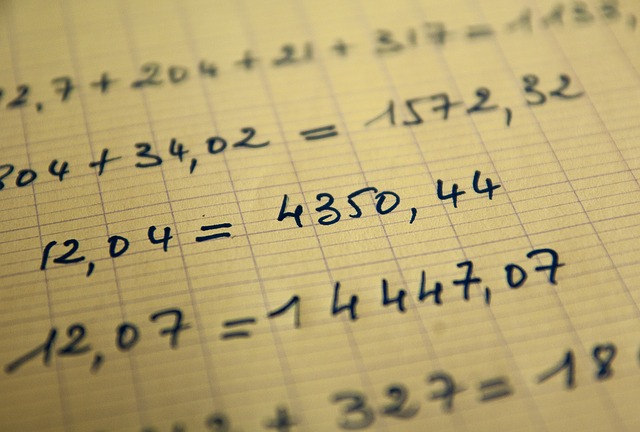 2,7 + 204 + 21 + 317 = 1,133,
304 + 34,02 = 1572,32
12,04 = 4350,44
12,07 = 14447,07
+ 327 = 18